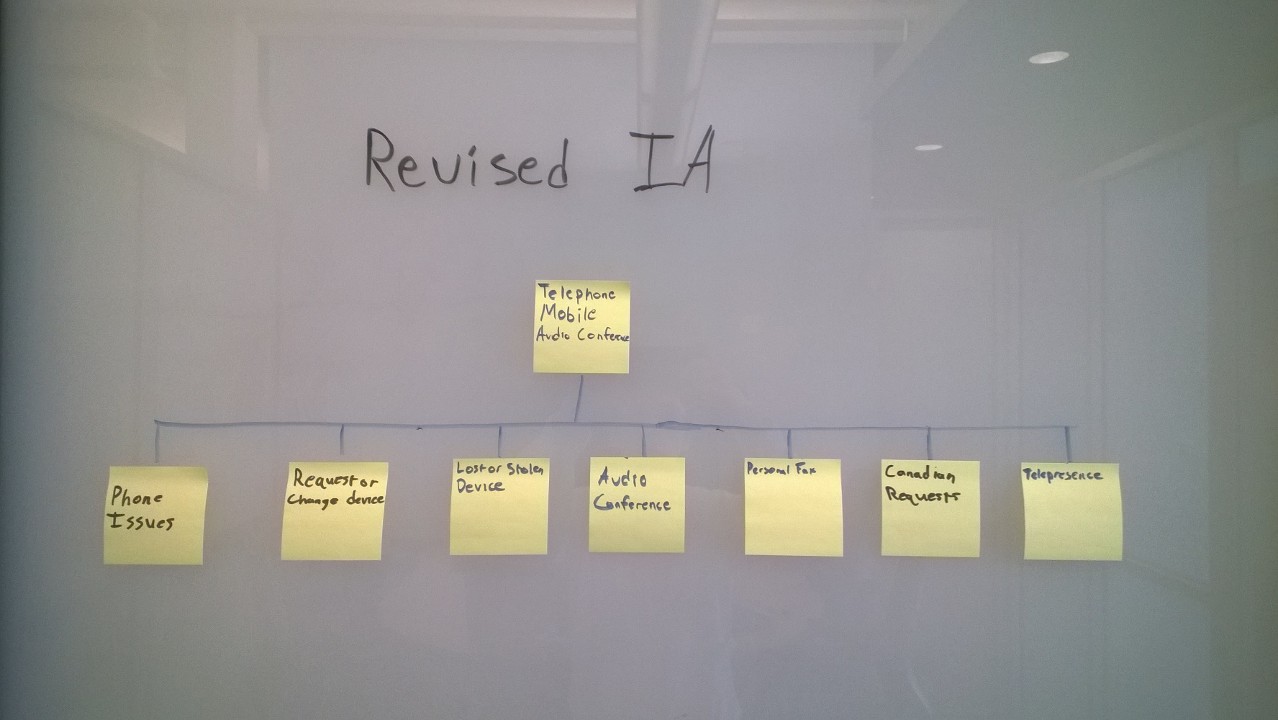 Revised IA
Telephone
Mobile
Audio Conference
Phone
Issues
Request or
Change device
Lost or Stolen
Device
Audio
Conference
Personal Fax
Canadian
Requests
Telepresence